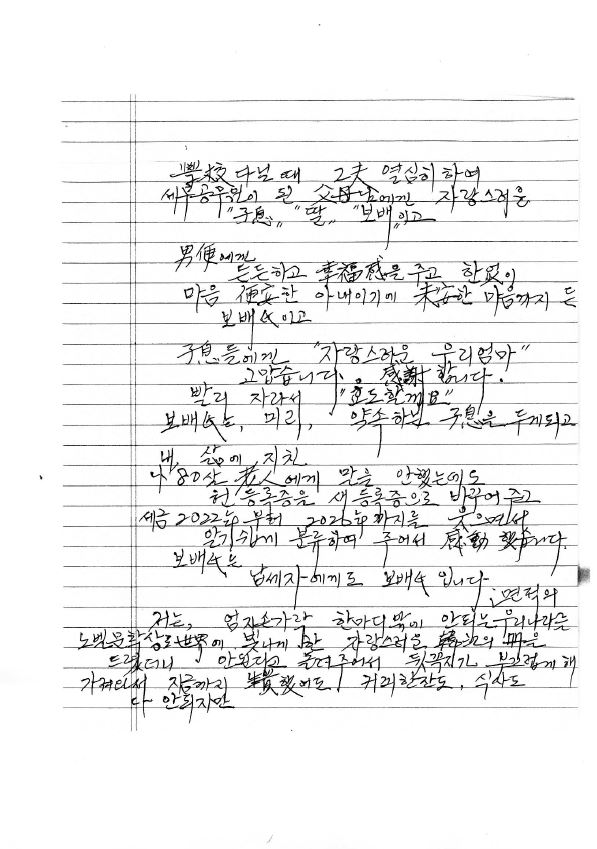 學校 다닐 때 工夫 열심히 하여
세무공무원이 된 父母님에겐 자랑스러운
"子息" "딸" "보배"이고
男便에겐
든든하고 幸福感을 주고 한없이
마음 便安한 아내이기에 未安한 마음까지 든
보배 이고
子息들에겐 "자랑스러운 우리엄마"
고맙습니다. 感謝합니다.
빨리 자라서 "효도할께요"
보배 는, 미리, 약속하는 子息을 두게되고
내, 삶에 지친
나 80살 老人에게 말을 안했는데도
헌 등록증을 새 등록증으로 바꾸어 주고
세금 2022年부터 2026年까지를 웃으면서
알기쉽게 분류하여 주어서 感動했습니다.
보배 는
납세자에게도 보배 입니다
면적의
저는, 엄지손가락 한마디밖에 안되는 우리나라를
노벨문학상으로 世界에 빛나게 한 자랑스러운 을
드렸더니 안된다고 돌려주어서 뒷꼭지가 부끄럽게 해
가져와서 지금까지 했어도, 커피한잔도, 식사도
다 안되지만